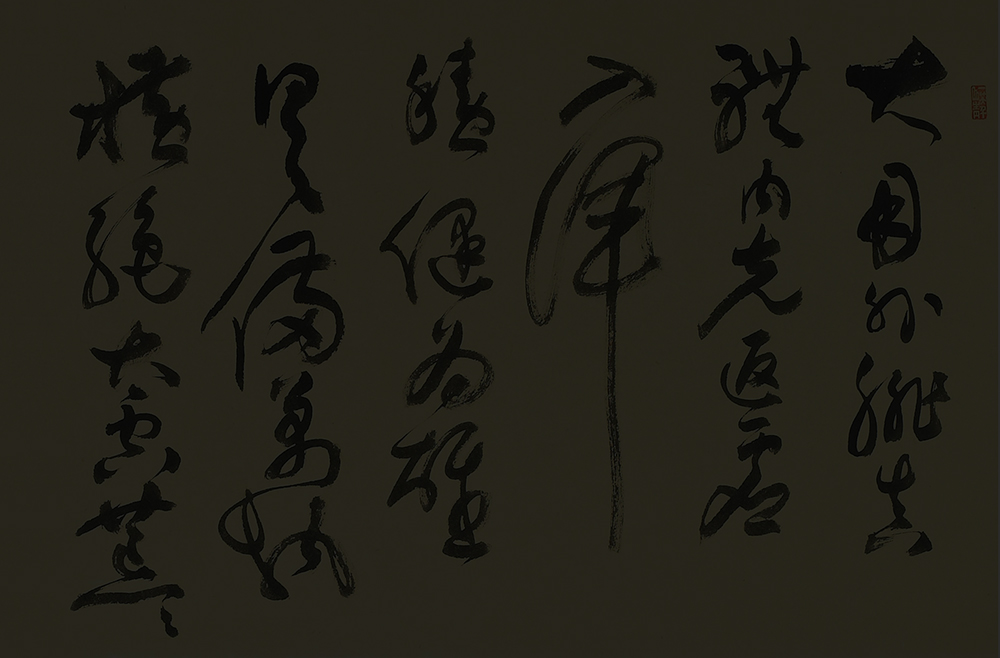 大用外腓真
體内充返虛
入渾
積健为雄
具備萬物
橫絶太空荒々